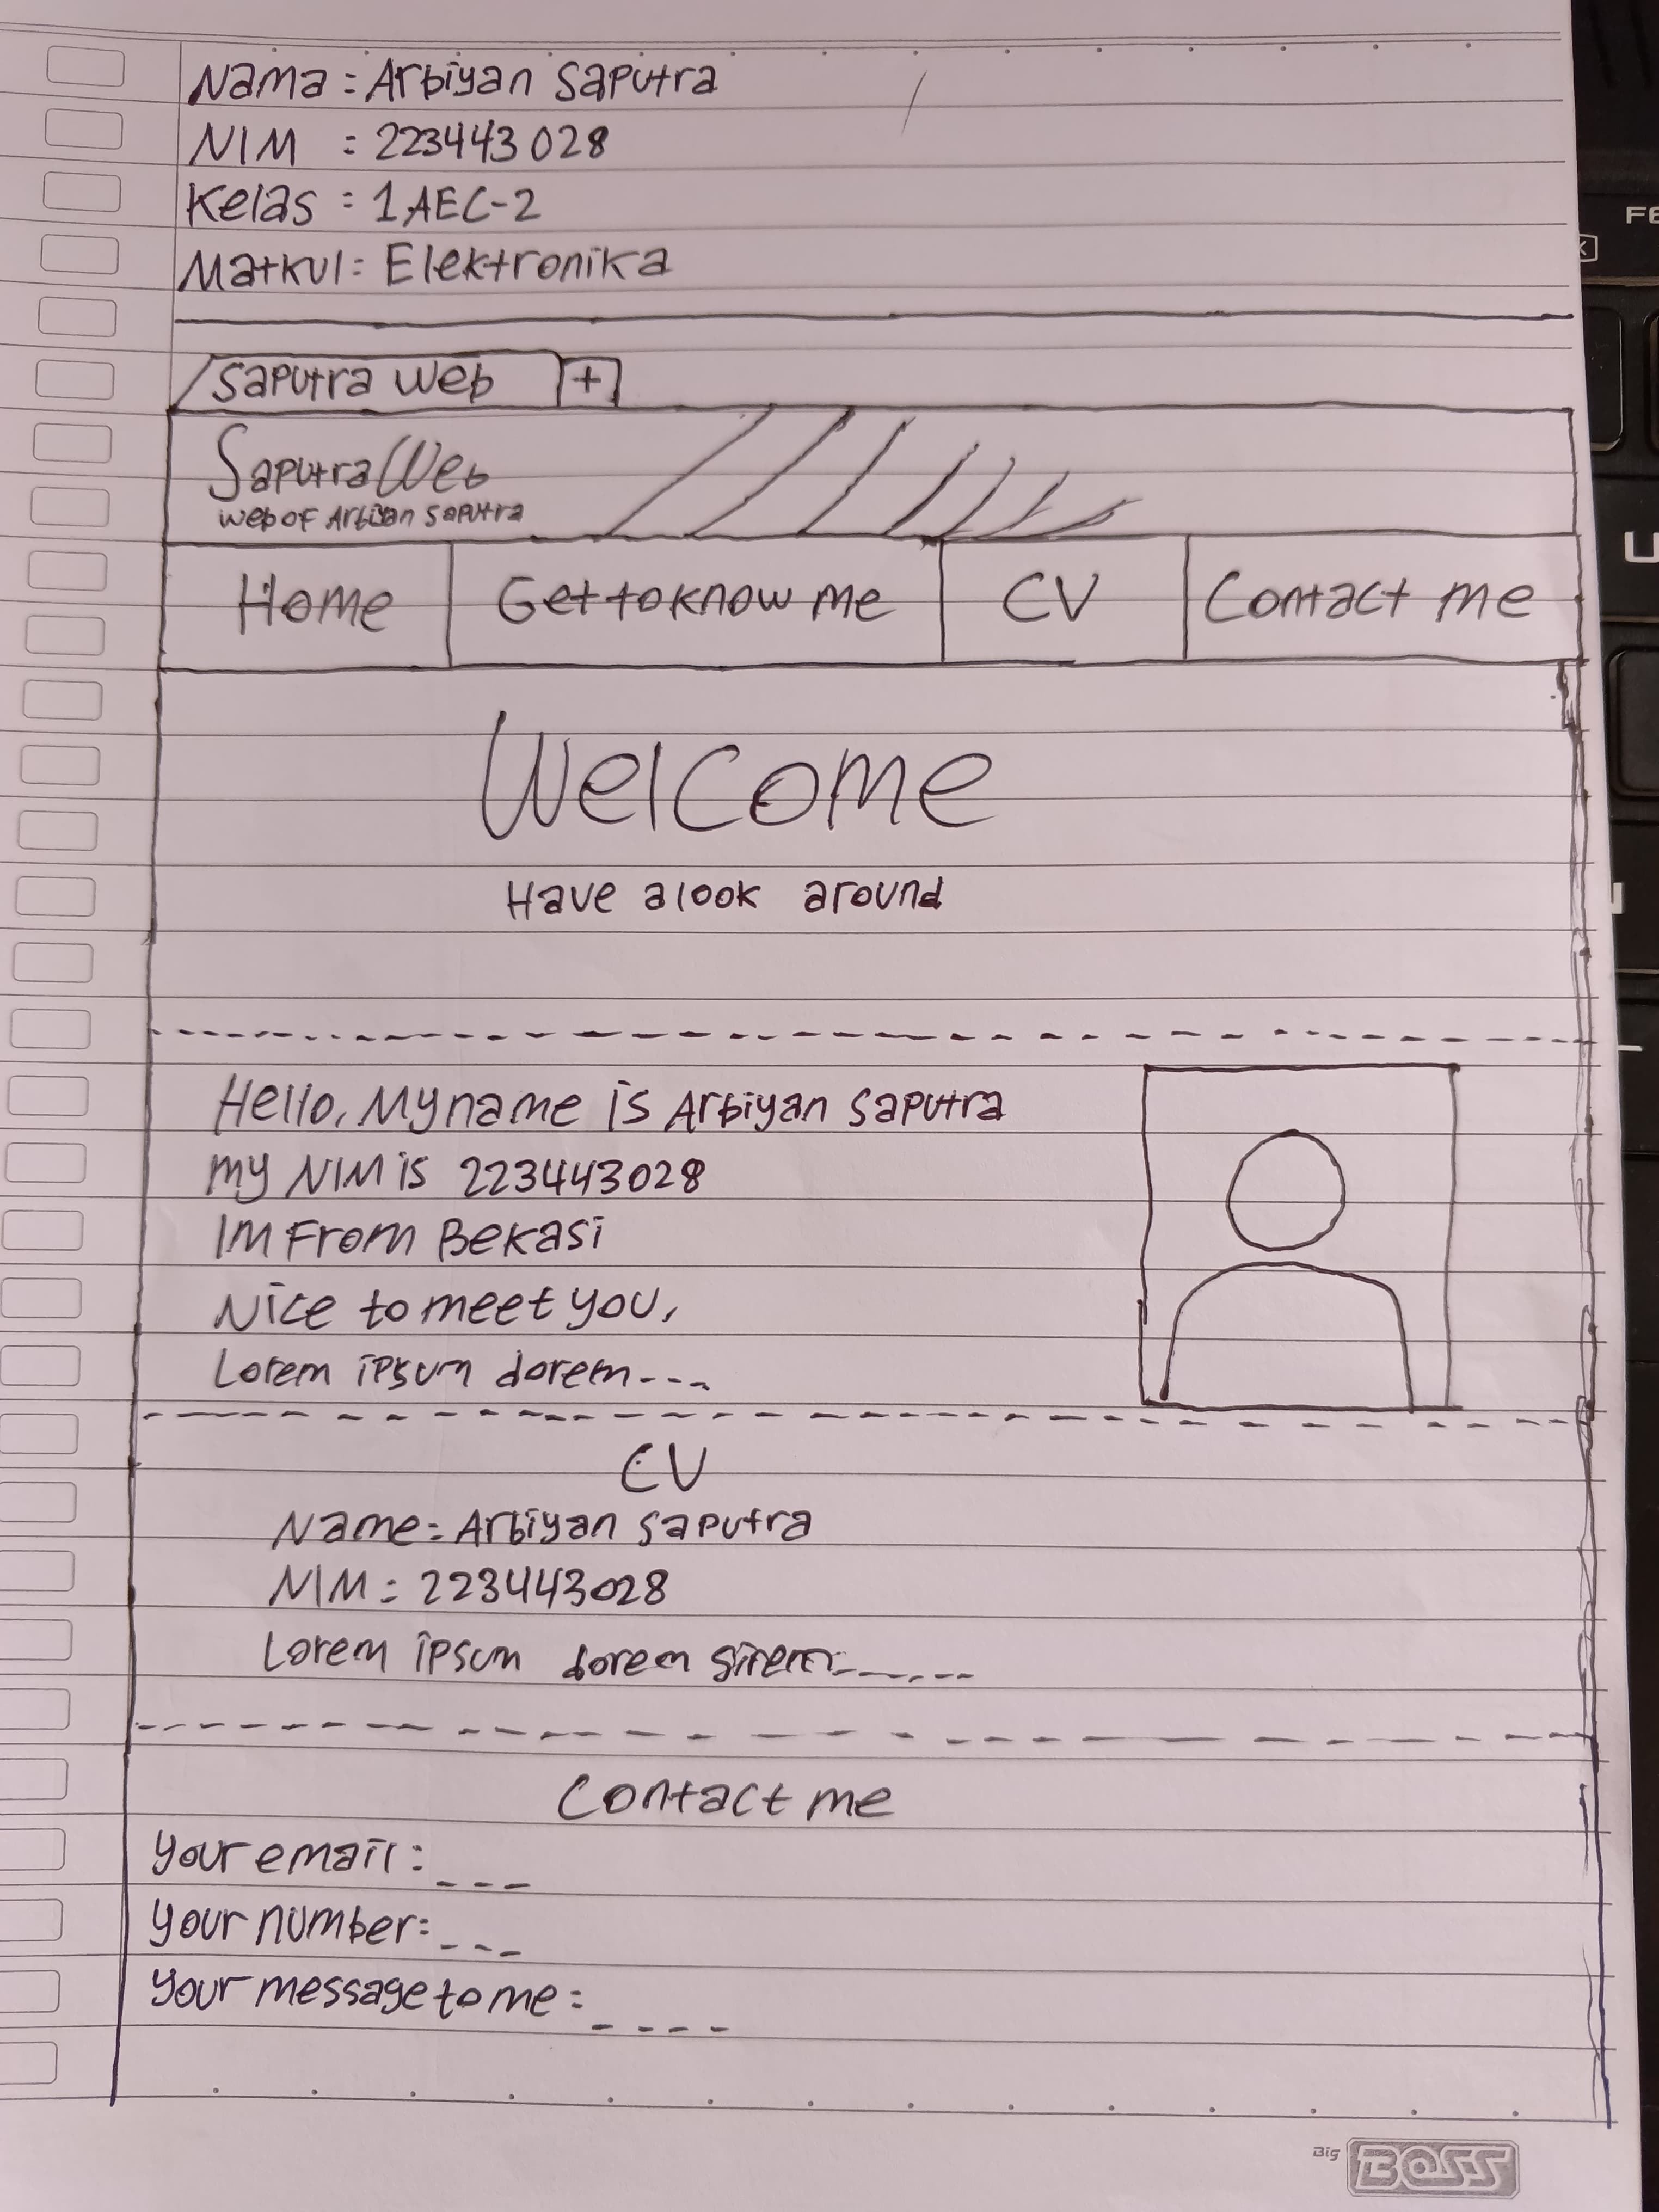 Nama : Arbiyan Saputra
NIM : 223443028
Kelas : 1AEC-2
Matkul : Elektronika
Saputra Web +
Saputra Web
web of Arbiyan Saputra
Home Get to know me CV Contact me
Welcome
Have a look around
Hello, My name is Arbiyan Saputra
my NIM is 223443028
IM From Bekasi
Nice to meet you,
Lorem ipsum dorem---
CV
Name : Arbiyan Saputra
NIM : 223443028
Lorem ipsum dorem
Contact me
Your email : ---
Your number : ---
Your message to me : ----
Big BOSS
F6
U